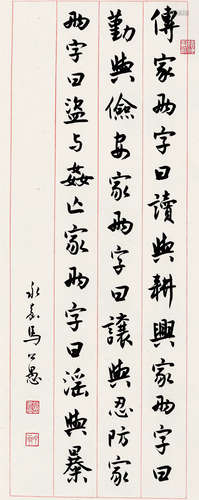 傳家兩字曰讀與耕興家兩字曰
勤與儉安家兩字曰讓與忍防家
兩字曰盜与姦亡家兩字曰淫與暴
永嘉馬公愚